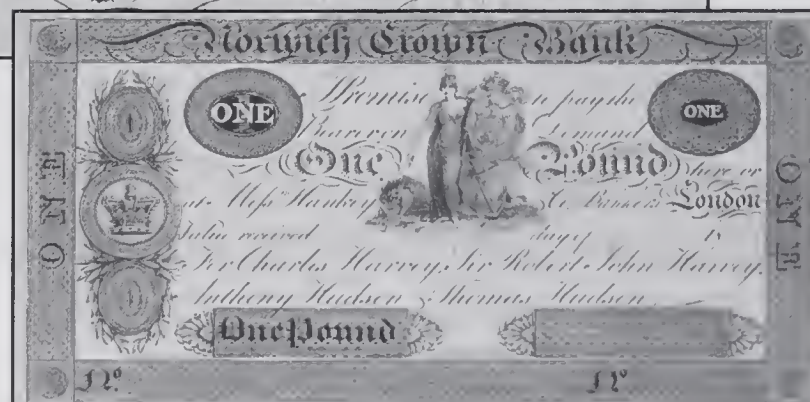 Norwich Crown Bank
ONE
ONE
I Promise to pay the
Bearer on Demand
One Pound here or
at Messrs Hankey & Co. Bankers London
Value received day of 18
For Charles Harvey, Sir Robert John Harvey,
Anthony Hudson & Thomas Hudson
One Pound
No. No.
ONE
ONE
1